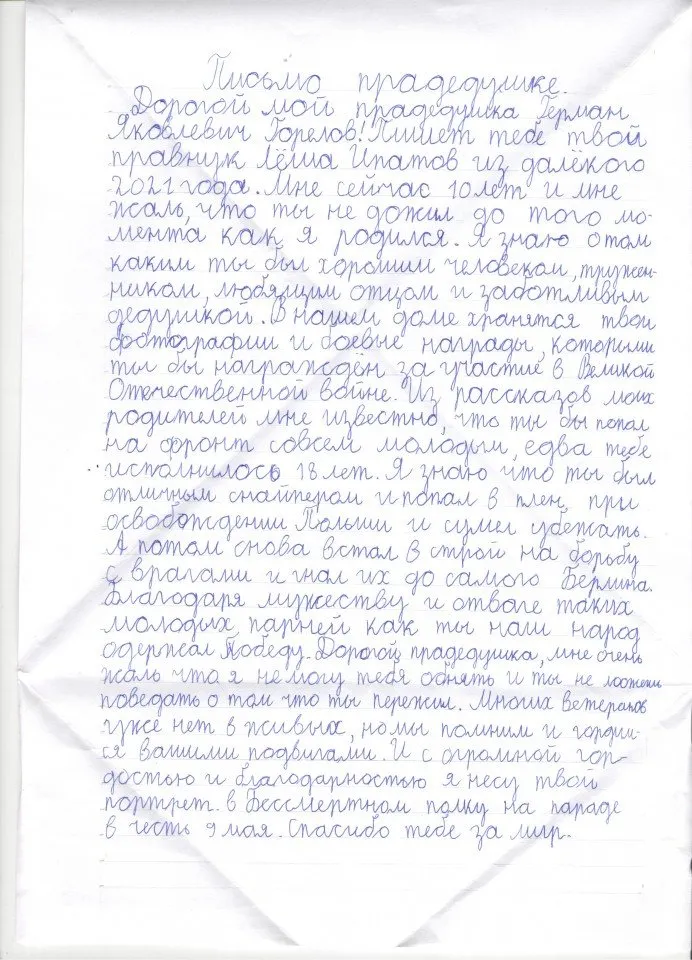 Письмо прадедушке.
Дорогой мой прадедушка Герман
Яковлевич Горелов! Пишет тебе твой
правнук Лёша Ипатов из далёкого
2021 года. Мне сейчас 10 лет и мне
жаль, что ты не дожил до того мо-
мента как я родился. Я знаю о том
каким ты был хорошим человеком, тружен-
ником, любящим отцом и заботливым
дедушкой. В нашем доме хранятся твои
фотографии и боевые награды, которыми
ты бы награждён за участие в Великой
Отечественной войне. Из рассказов моих
родителей мне известно, что ты бы попал
на фронт совсем молодым, едва тебе
исполнилось 18 лет. Я знаю что ты был
отличным снайпером и попал в плен, при
освобождении Польши и сумел убежать.
А потом снова встал в строй на борьбу
с врагами и гнал их до самого Берлина.
Благодаря мужеству и отваге таких
молодых парней как ты наш народ
одержал Победу. Дорогой прадедушка, мне очень
жаль что я не могу тебя обнять и ты не можешь
поведать о том что ты пережил. Многих Ветеранов
уже нет в живых, но мы помним и гордим-
ся вашими подвигами. И с огромной гор-
достью и благодарностью я несу твой
портрет в Бессмертном полку на параде
в честь 9 мая. Спасибо тебе за мир.